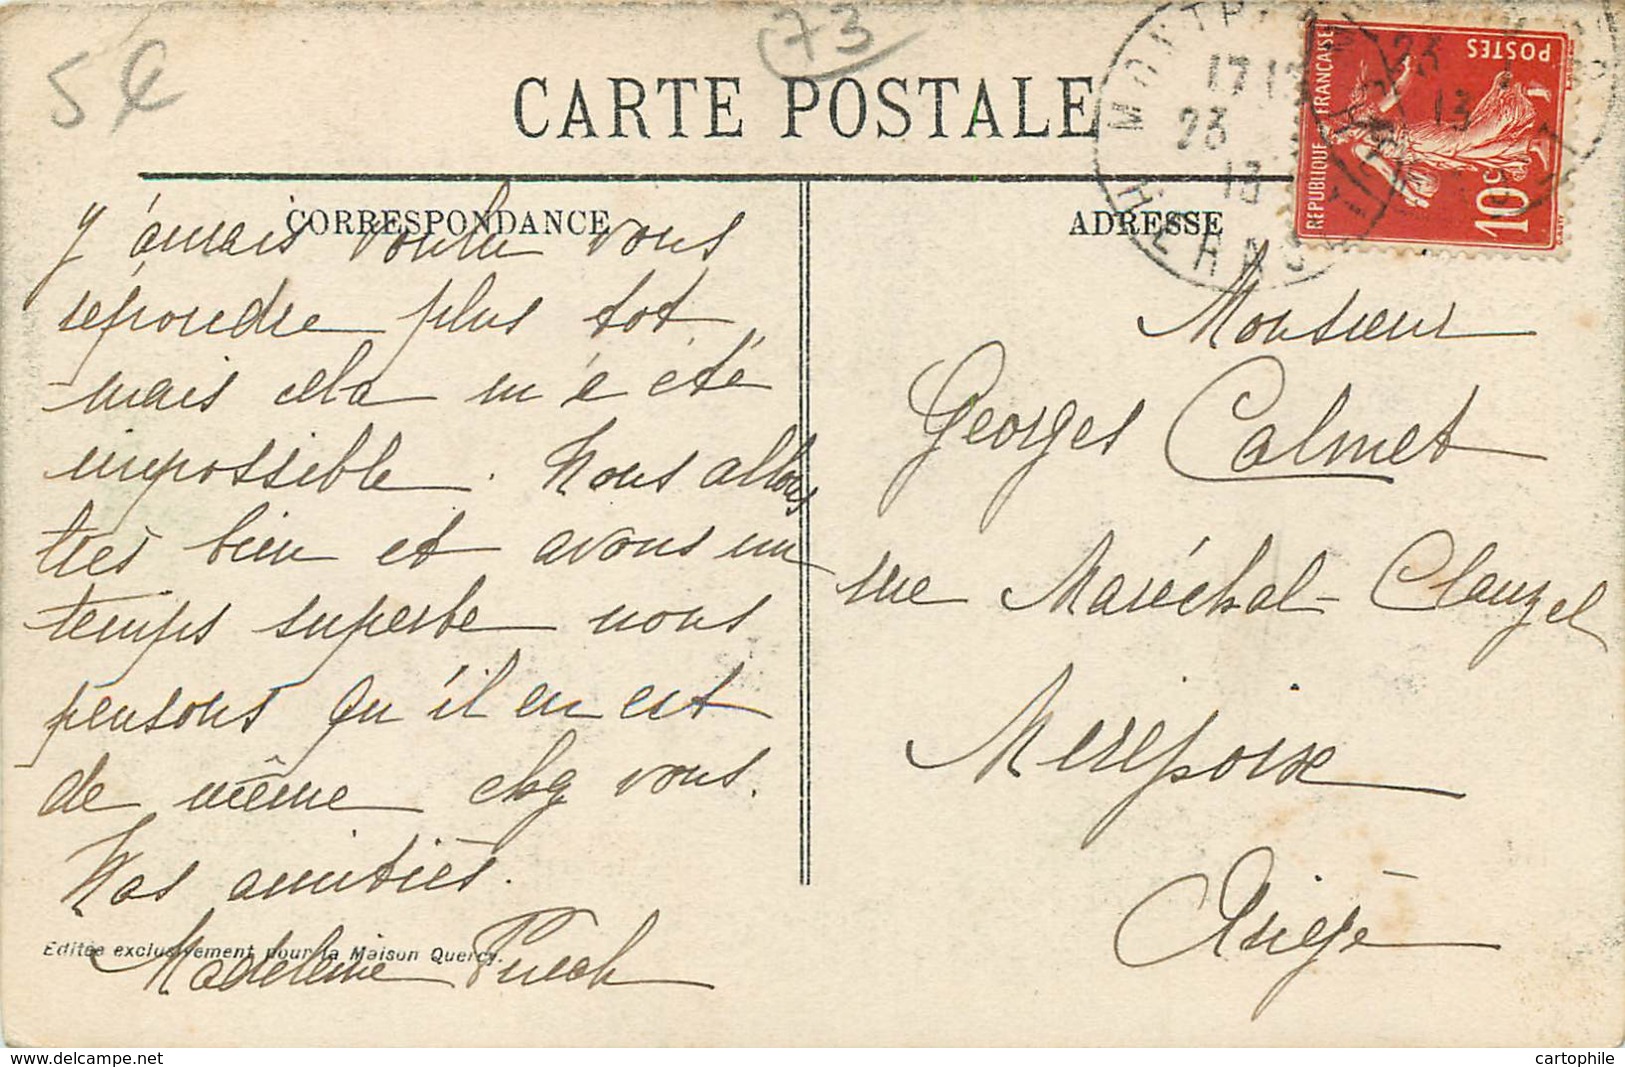 73
5€
CARTE POSTALE
CORRESPONDANCE
J'amais voulu vous
répondre plus tot
mais cela m'a été
impossible. Nous allons
très bien et avons un
temps superbe nous
pensons qu'il en est
de même chez vous.
Nos amitiés.
Madeleine Puech
Editée exclusivement pour la Maison Quercy.
ADRESSE
17 15
23
13
HERAULT
REPUBLIQUE FRANÇAISE
POSTES
10c
23
13
Monsieur
Georges Calmet
rue Maréchal-Clauzel
Mirepoix
Ariège
delcampe.net
cartophile